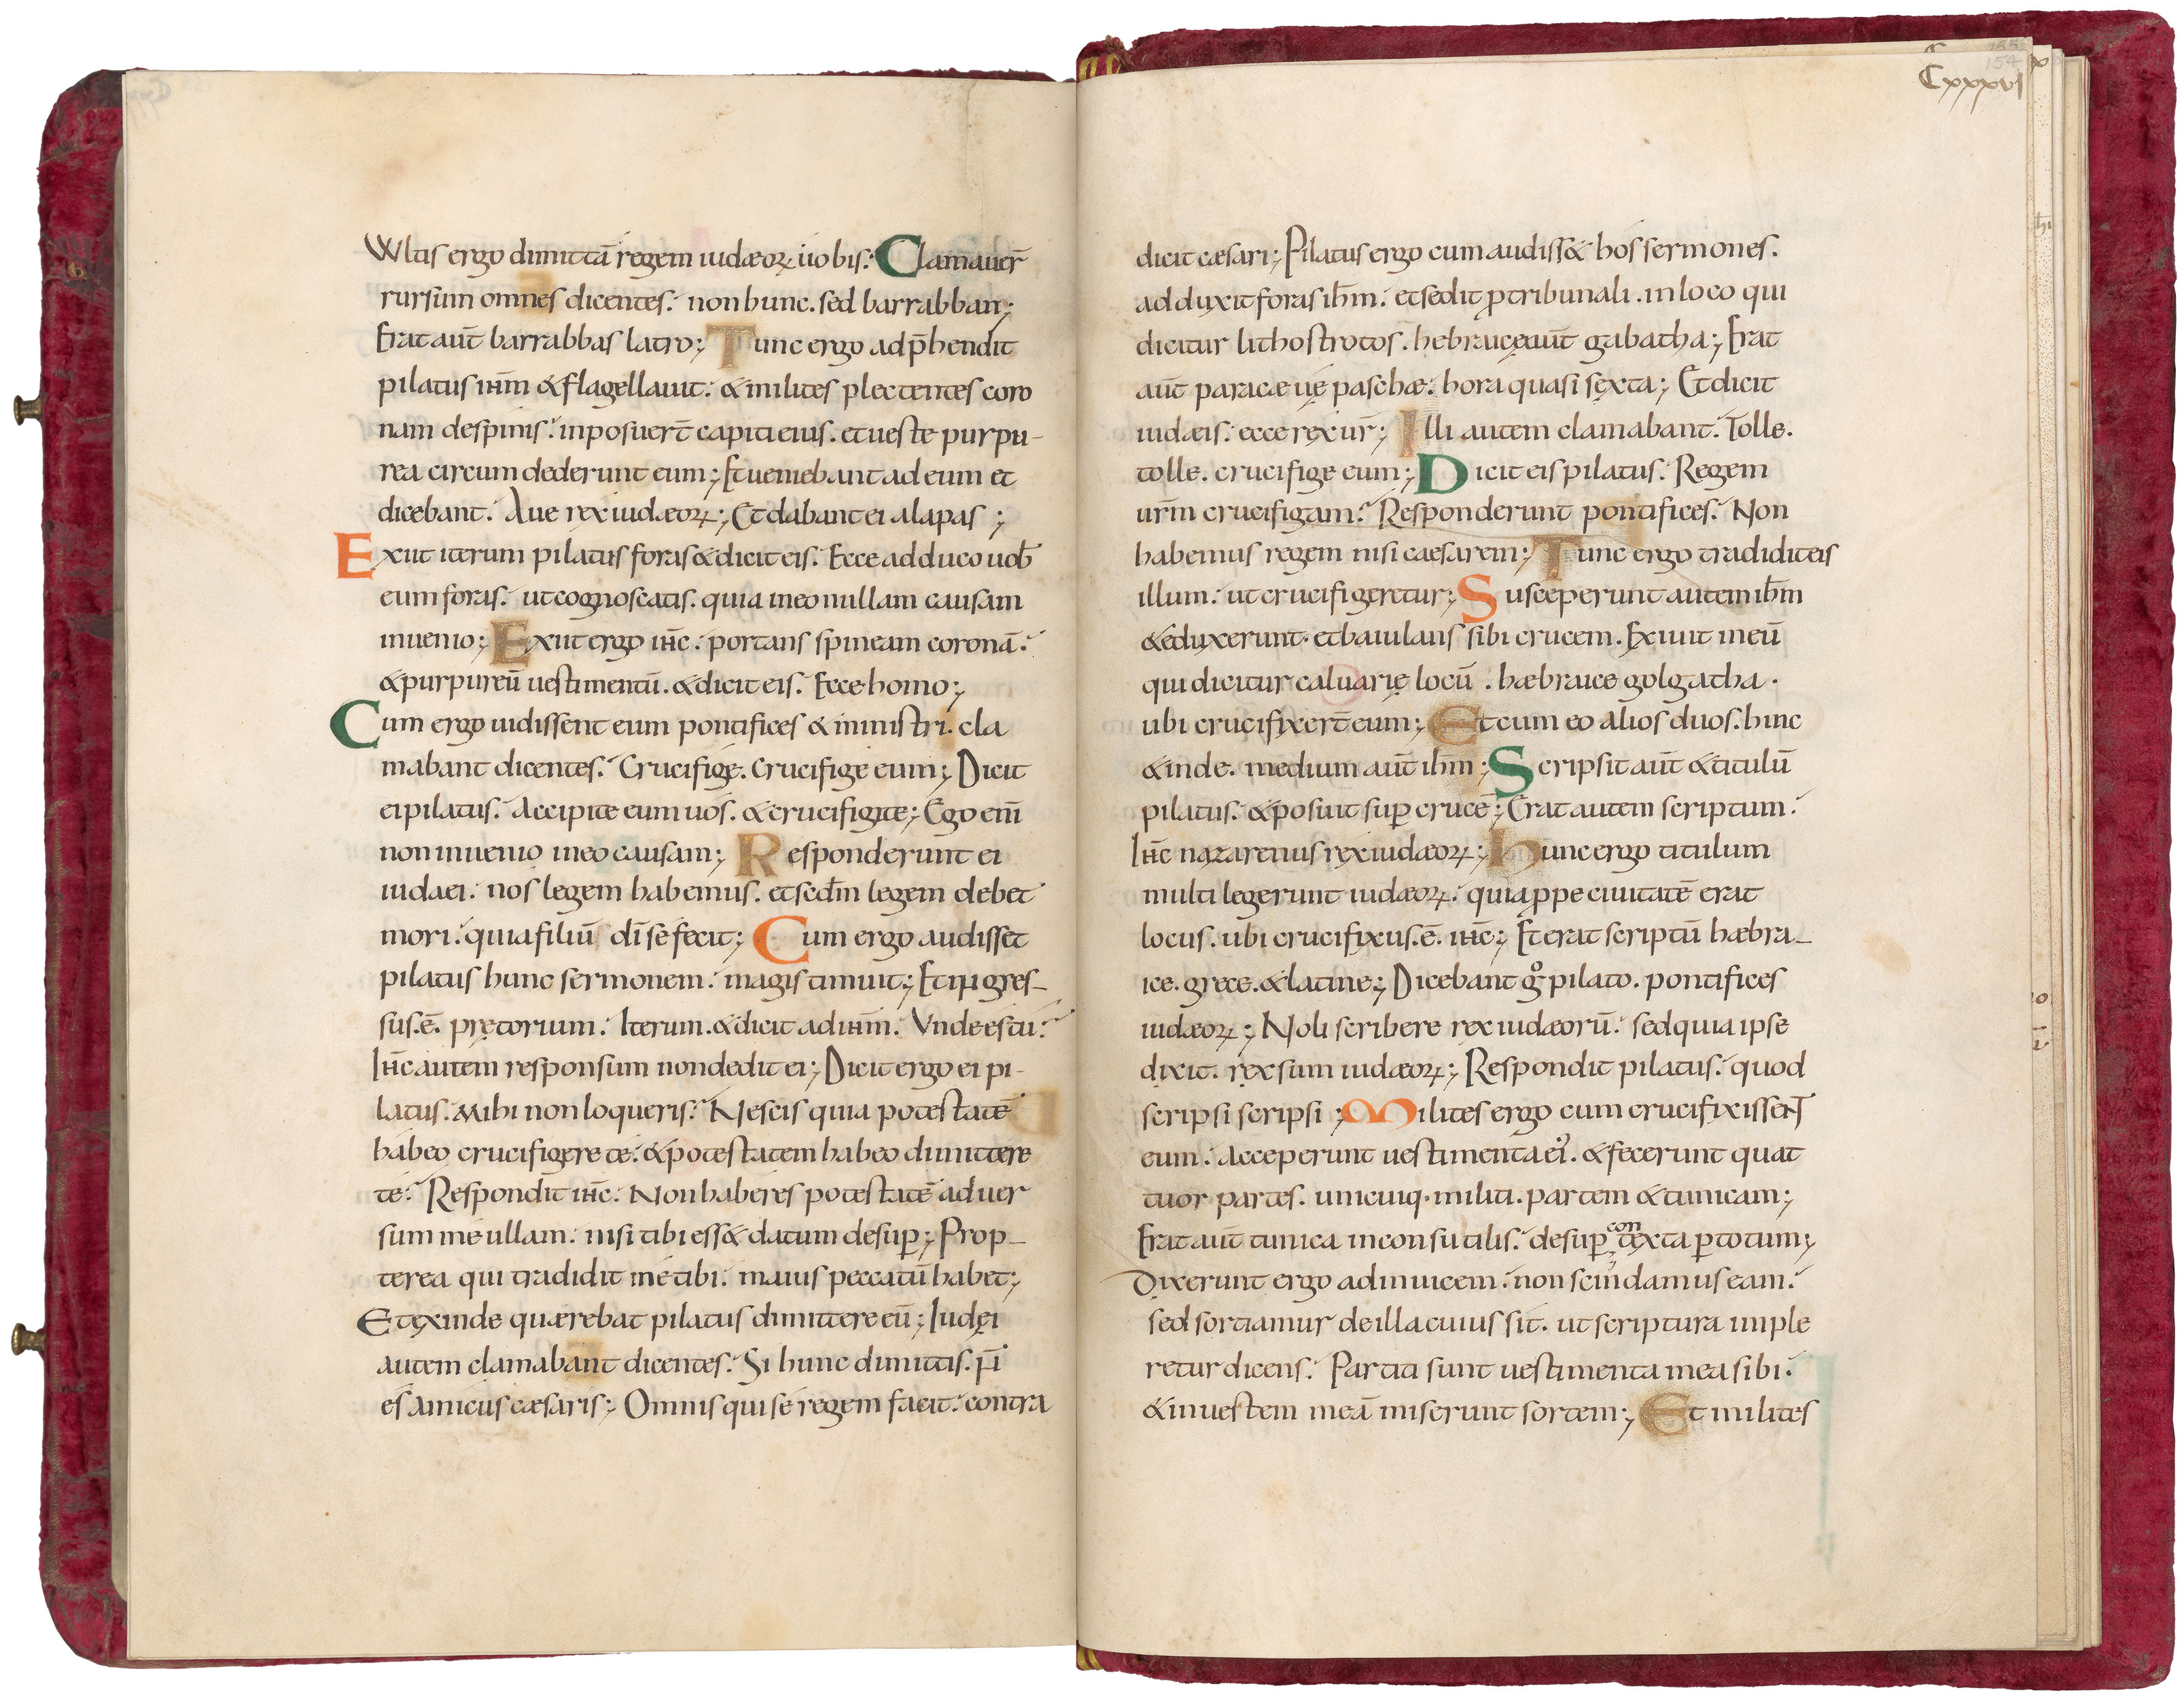 Wltis ergo dimittā regem iudæoꝝ uobis? Clamauer̄
rursum omnes dicentes. non hunc. sed barrabban;
Erat aut̄ barrabbas latro; Tunc ergo adp̄hendit
pilatus ihm̄ & flagellauit. & milites plectentes coro
nam despinis. inposuer̄t capiti eius. et ueste purpu-
rea circum dederunt eum; Et ueniebant ad eum et
dicebant. Aue rex iudæoꝝ; Et dabant ei alapas;
Exiit iterum pilatus foras & dicit eis. Ecce adduco uob̄
eum foras. ut cognoscatis. quia in eo nullam causam
inuenio; Exiit ergo ihc̄. portans spineam coronā.
& purpureū uestimentū. & dicit eis. Ecce homo;
Cum ergo uidissent eum pontifices & ministri. cla
mabant dicentes. Crucifige. crucifige eum; Dicit
ei pilatus. Accipite eum uos. & crucifigite; Ego eni̅
non inuenio in eo causam; Responderunt ei
iudaei. nos legem habemus. et scdm̄ legem debet
mori. quia filiū dī se fecit; Cum ergo audisset
pilatus hunc sermonem. magis timuit; Et ingres-
sus.ē. prętorium. Iterum. & dicit ad ihm̄. Vnde es tu?
Ihc̄ autem responsum non dedit ei; Dicit ergo ei pi-
latus. Mihi non loqueris? Nescis quia potestatē
habeo crucifigere te. & potestatem habeo dimittere
te? Respondit ihc̄. Non haberes potestatē aduer
sum me ullam. nisi tibi ess& datum desuꝑ; Prop-
terea qui tradidit me tibi. maius peccatū habet;
Et exinde quærebat pilatus dimittere eū; Iudęi
autem clamabant dicentes. Si hunc dimittis. n̄
es amicus cæsaris; Omnis qui se regem facit. contra
Cxxxvi
dicit cæsari; Pilatus ergo cum audiss& hos sermones.
adduxit foras ihm̄. et sedit ꝓtribunali. in loco qui
dicitur lithostrotos. hebraicę aut̄ gabatha; Erat
aut̄ parasceue paschæ. hora quasi sexta; Et dicit
iudæis. ecce rex ur̄; Illi autem clamabant. Tolle.
tolle. crucifige eum; Dicit eis pilatus. Regem
urm̄ crucifigam? Responderunt pontifices. Non
habemus regem nisi caesarem; Tunc ergo tradidit eis
illum. ut crucifigeretur; Susceperunt autem ihm̄
& eduxerunt. et baiulans sibi crucem. Exiuit in eū
qui dicitur caluarię locū. hæbraice golgatha.
ubi crucifixer̄t eum; Et cum eo alios duos. hinc
& inde. medium aut̄ ihm̄; Scripsit aut̄ & titulū
pilatus. & posuit suꝑ crucē; Erat autem scriptum.
Ihc̄ nazarenus rex iudæoꝝ; Hunc ergo titulum
multi legerunt iudæoꝝ. quia ꝓpe ciuitatē erat
locus. ubi crucifixus.ē. ihc̄; Et erat scriptū hæbra-
ice. grece. & latine; Dicebant gͦ pilato. pontifices
iudæoꝝ; Noli scribere rex iudæorū. sed quia ipse
dixit. rex sum iudæoꝝ; Respondit pilatus. quod
scripsi scripsi; Milites ergo cum crucifixissent
eum. acceperunt uestimenta ei'. & fecerunt quat
tuor partes. unicuiq. militi. partem & tunicam;
Erat aut̄ tunica inconsutilis. desuꝑ contexta ꝑtotum;
Dixerunt ergo adinuicem. non scindamus eam.
sed sortiamur de illa cuius sit. ut scriptura imple
retur dicens. Partiti sunt uestimenta mea sibi.
& in uestem meā miserunt sortem; Et milites